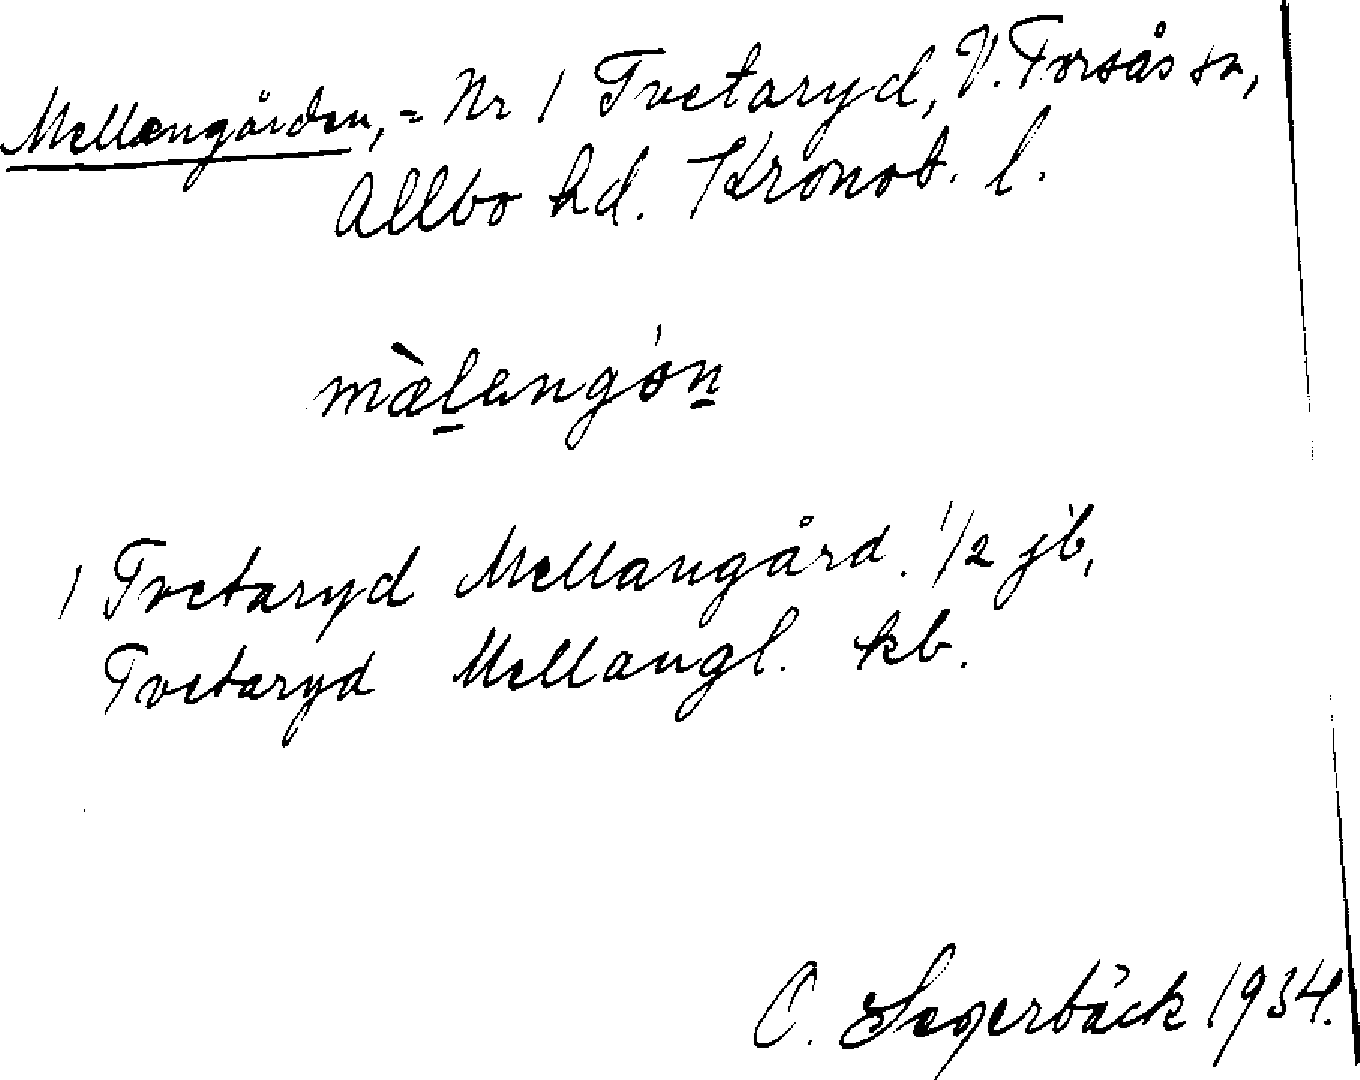 Mellangården, = Nr 1 Tvetaryd, V. Torsås sn,
Allbo hd. Kronob. l.
mæ̀langón
1 Tvetaryd Mellangård. 1/2 jb,
Tvetaryd Mellangl. kb.
C. Segerbäck 1934.